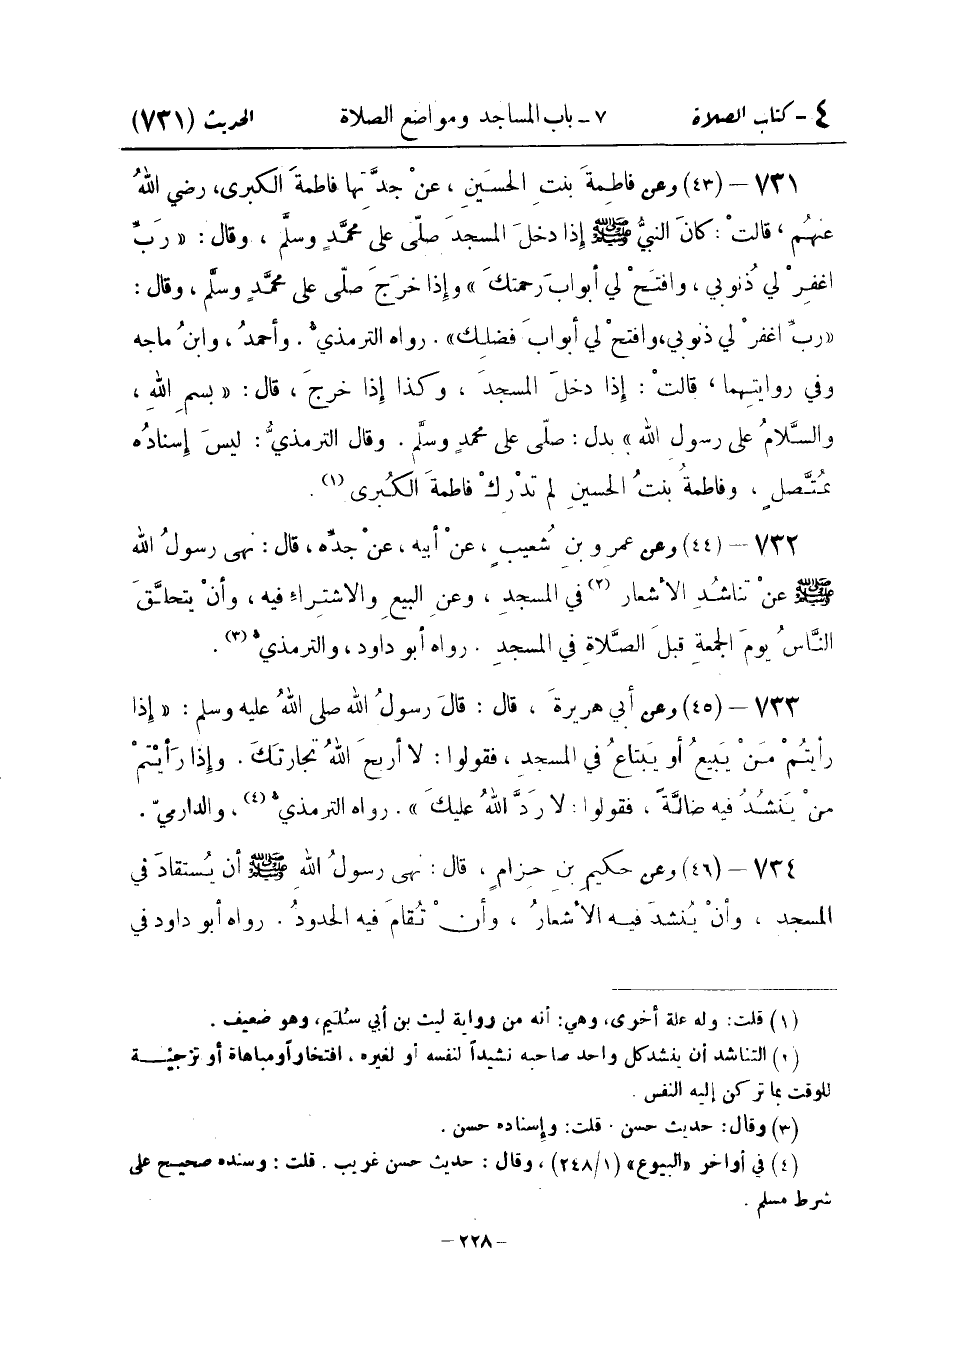 ٤ - كتاب الصلاة ٧ - باب المساجد ومواضع الصلاة الحديث (٧٣١)
٧٣١ - (٤٣) وعن فاطِمةَ بنتِ الحسَينِ ، عنْ جدَّتها فاطمةَ الكبرى، رضي اللهُ
عنهُم ، قالتْ : كانَ النبيُّ ﷺ إذا دخلَ المسجدَ صلّى على محمَّدٍ وسلَّم ، وقال : « رَبِّ
اغفِرْ لي ذُنوبي ، وافتَحْ لي أبوابَ رحمتكَ » وإذا خرجَ صلّى على محمَّدٍ وسلَّم ، وقال :
«ربِّ اغفرْ لي ذنوبي،وافتحْ لي أبوابَ فضلِك» . رواه الترمذيُّ . وأحمدُ ، وابنُ ماجه
وفي روايتِهما ، قالتْ : إذا دخلَ المسجدَ ، وكذا إذا خرجَ ، قال : « بسمِ اللهِ ،
والسَّلامُ على رسولِ الله » بدل : صلّى على محمدٍ وسلَّم . وقال الترمذيُّ : ليسَ إسنادُه
بمُتَّصلٍ ، وفاطمةُ بنتُ الحسينِ لم تدْركْ فاطمةَ الكُبرى (١) .
٧٣٢ - (٤٤) وعن عمرو بنِ شُعيبٍ ، عنْ أبيه ، عنْ جدِّه ، قال : نهى رسولُ الله
ﷺ عنْ تناشُدِ الأشعار (٢) في المسجدِ ، وعنِ البيعِ والاشتِراءِ فيه ، وأنْ يتحلَّقَ
النَّاسُ يومَ الجمعةِ قبلَ الصَّلاةِ في المسجدِ . رواه أبو داود ، والترمذيُّ (٣) .
٧٣٣ - (٤٥) وعن أبي هريرةَ ، قال : قالَ رسولُ الله صلى اللهُ عليه وسلم : « إذا
رأيتُمْ مَنْ يَبيعُ أو يَبتاعُ في المسجدِ ، فقولوا : لا أربحَ اللهُ تجارتَكَ . وإذا رَأيْتمْ
منْ يَنشُدُ فيه ضالَّةً ، فقولوا : لا ردَّ اللهُ عليكَ » . رواه الترمذيُّ (٤) ، والدارميّ .
٧٣٤ - (٤٦) وعن حكيمِ بنِ حِزامٍ ، قال : نهى رسولُ اللهِ ﷺ أن يُستقادَ في
المسجد ، وأنْ يُنشدَ فيه الأشعارُ ، وأنْ تُقامَ فيه الحدودُ . رواه أبو داود في
(١) قلت: وله علة أخرى، وهي: أنه من رواية ليث بن أبي سُليم، وهو ضعيف .
(٢) التناشد أن ينشدكل واحد صاحبه نشيداً لنفسه أو لغيره ، افتخاراًومباهاة أو تزجيَّة
للوقت بما تركن إليه النفس .
(٣) وقال: حديث حسن . قلت: وإسناده حسن .
(٤) في أواخر «البيوع» (٢٤٨/١) ، وقال : حديث حسن غريب . قلت : وسنده صحيح على
شرط مسلم .
- ٢٢٨ -